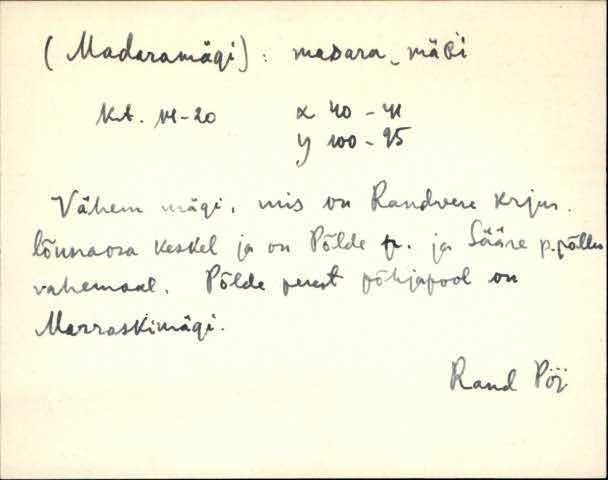 (Madaramägi): maDara_mäGi
Kt. VI-20 x 40-41
y 100-95
Vähem mägi, mis on Randvere krjus.
lõunaosa keskel ja on Põlde p. ja Sääre p. põllu
vahemaal. Põlde perest põhjapool on
Marraskimägi.
Rand Pöi